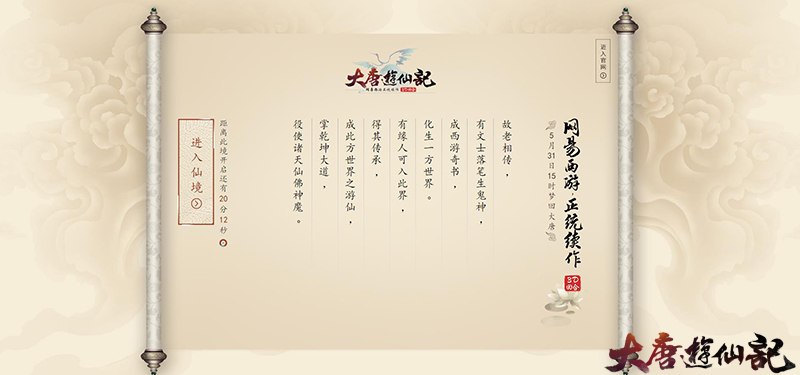 大唐游仙記
网易西游正统续作
3D
回合
5月31日15时梦回大唐
进入官网
故老相传，
有文士落笔生鬼神，
成西游奇书，
化生一方世界。
有缘人可入此界，
得其传承，
成此方世界之游仙，
掌乾坤大道，
役使诸天仙佛神魔。
距离此境开启还有20分12秒
进入仙境
大唐游仙記